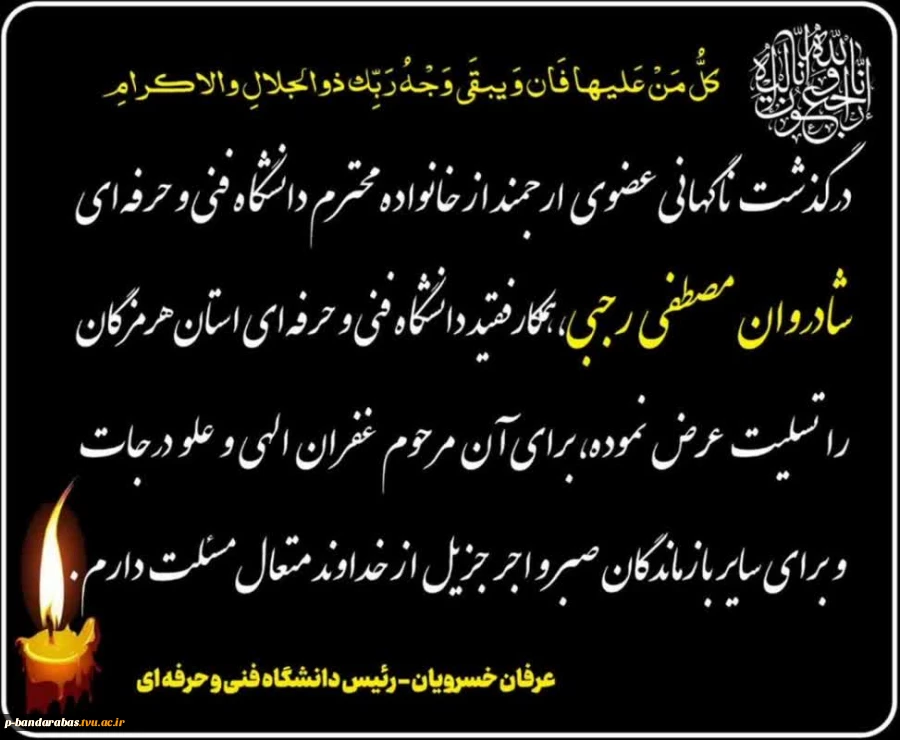 إنا لله وإنا إليه راجعون
كلُّ مَنْ عَليها فَان وَ يبقَى وَجْهُ رَبِّك ذوالجلالِ والاكرامِ
درگذشت ناگهانی عضوی ارجمند از خانواده محترم دانشگاه فنی و حرفه ای
شادروان مصطفی رجبی، همکار فقید دانشگاه فنی و حرفه ای استان هرمزگان
را تسلیت عرض نموده، برای آن مرحوم غفران الهی و علو درجات
و برای سایر بازماندگان صبر و اجر جزیل از خداوند متعال مسئلت دارم.
عرفان خسرویان - رئیس دانشگاه فنی و حرفه ای
p-bandarabas.tvu.ac.ir